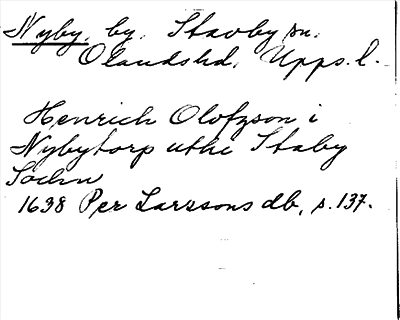 Nyby, by, Stavby sn.
Olandshd, Upps. l.
Henrich Olofzson i
Nybytorp uthi Staby
Sochn
1638 Per Larssons db, s. 137.